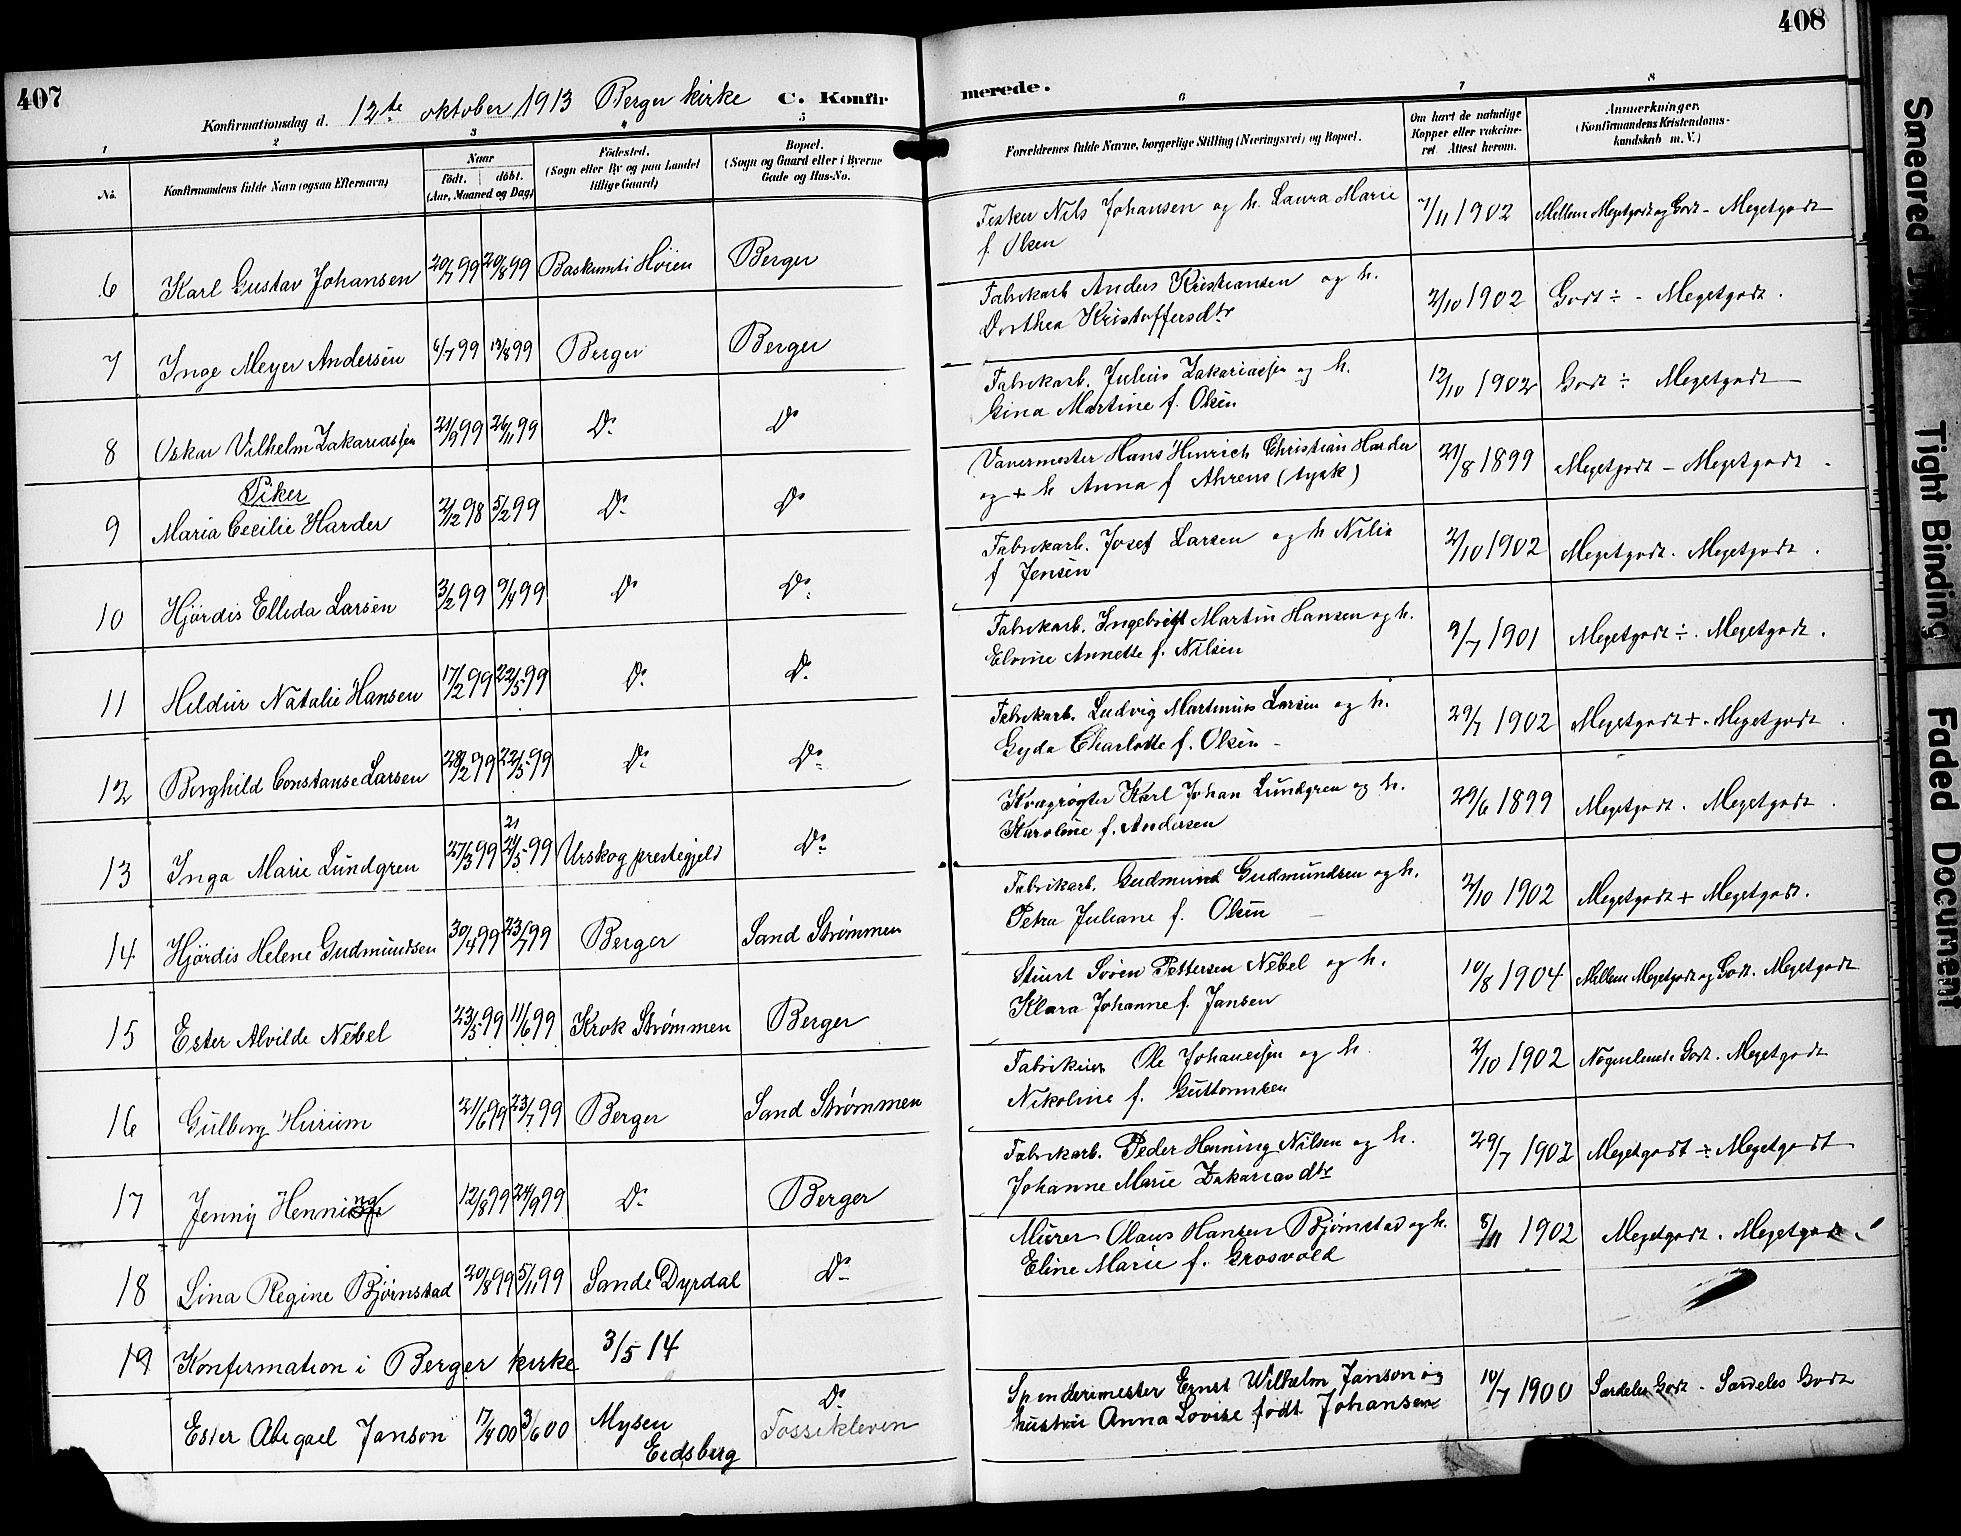 407
408
Konfirmationsdag d. 12te oktober 1913 Berger kirke C. Konfirmerede.
1 2 3 5 6 7 8
No. Konfirmandens fulde Navn (ogsaa Efternavn) Naar født. døbt. (Aar, Maaned og Dag) Fødested. (Sogn eller By og paa Landet tillige Gaard) Bopæl. (Sogn og Gaard eller i Byerne Gade og Hus-No. Forældrenes fulde Navne, borgerlige Stilling (Næringsvei) og Bopæl. Om havt de naturlige Kopper eller vakcineret. Attest herom. Anmærkninger. (Konfirmandens Kristendomskundskab m. V.)
6 Karl Gustav Johansen 20/7 99 20/8 99 Høien Berger Fisker Nils Johansen og h. Laura Marie f. Olsen 7/11 1902 Mellem Megetgodt og Godt - Megetgodt
7 Inge Meyer Andersen 6/7 99 13/8 99 Berger Berger Fabrikarb Anders Kristiansen og h. Dorthea Kristoffersdtr 2/10 1902 Godt ÷ - Megetgodt.
8 Oskar Vilhelm Zakariassen 21/9 99 26/11 99 Do Do Fabrikarb. Julius Zakariassen og h. Gina Martine f. Olsen 12/10 1902 Godt ÷ Megetgodt
Piker
9 Maria Cecilie Harder 2/12 98 5/2 99 Do Do Vævermester Hans Hinrich Christian Harder og + h Anna f Ahrens (tysk) 21/8 1899 Megetgodt - Megetgodt.
10 Hjørdis Ellida Larsen 3/2 99 9/4 99 Do Do Fabrikarb. Josef Larsen og h Nilia f Jensen 2/10 1902 Megetgodt. Megetgodt.
11 Hildur Natalie Hansen 17/2 99 22/5 99 Do Do Fabrikarb. Ingebrigt Martin Hansen og h. Elvine Annette f. Nilsen 9/7 1901 Megetgodt ÷. Megetgodt.
12 Borghild Constanse Larsen 28/2 99 22/5 99 Do Do Fabrikarb. Ludvig Martinius Larsen og h. Gyda Charlotte f. Olsen - 29/7 1902 Megetgodt +. Megetgodt.
13 Inga Marie Lundgren 27/3 99 21/5 99 Urskog prestegjeld Do Kvægrøgter Karl Johan Lundgren og h. Karoline f. Andersen 29/6 1899 Megetgodt. Megetgodt.
14 Hjørdis Helene Gudmundsen 30/4 99 23/7 99 Berger Sand Strømmen Fabrikarb. Gudmund Gudmundsen og h. Petra Juliane f. Olsen 2/10 1902 Megetgodt + Megetgodt.
15 Ester Alvilde Nebel 23/5 99 11/6 99 Krok Strømmen Berger Stuert Søren Pettersen Nebel og h. Klara Johanne f. Jansen 10/8 1904 Mellem Megetgodt og Godt. Megetgodt
16 Gulborg Hurum 21/6 99 23/7 99 Berger Sand Strømmen Ole Johanessen og h. Nikoline f. Guttormsen 2/10 1902 Nogenlunde Godt. Megetgodt
17 Jenny Henning 12/8 99 24/9 99 Do Berger Fabrikarb. Peder Henning Nilsen og h. Johanne Marie Zakariasdtr 29/7 1902 Megetgodt ÷ Megetgodt
18 Lina Regine Bjørnstad 20/8 99 5/11 99 Sande Dyrdal Do Murer Olaus Hansen Bjørnstad og h. Eline Marie f. Grosvold 8/11 1902 Megetgodt. Megetgodt.
19 Konfirmation i Berger kirke 3/5 14
Ester Abigael Janson 17/4 00 3/6 00 Mysen Eidsberg Do Fossekleven Spinderimester Ernst Wilhelm Janson og hustru Anna Lovise født Johansen 10/7 1900 Særdeles Godt - Særdeles Godt
Smeared Ink
Tight Binding
Faded Document